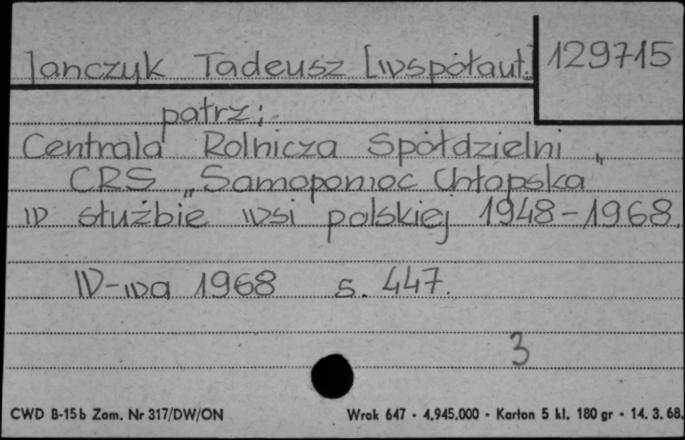 Janczyk Tadeusz [współaut.]
129715
patrz:
Centrala Rolnicza Spółdzielni
CRS „Samopomoc Chłopska"
w służbie wsi polskiej 1948-1968.
W-wa 1968 s. 447.
3
CWD B-15b Zam. Nr 317/DW/ON
Wrak 647 - 4.945.000 - Karton 5 kl. 180 gr - 14. 3. 68.